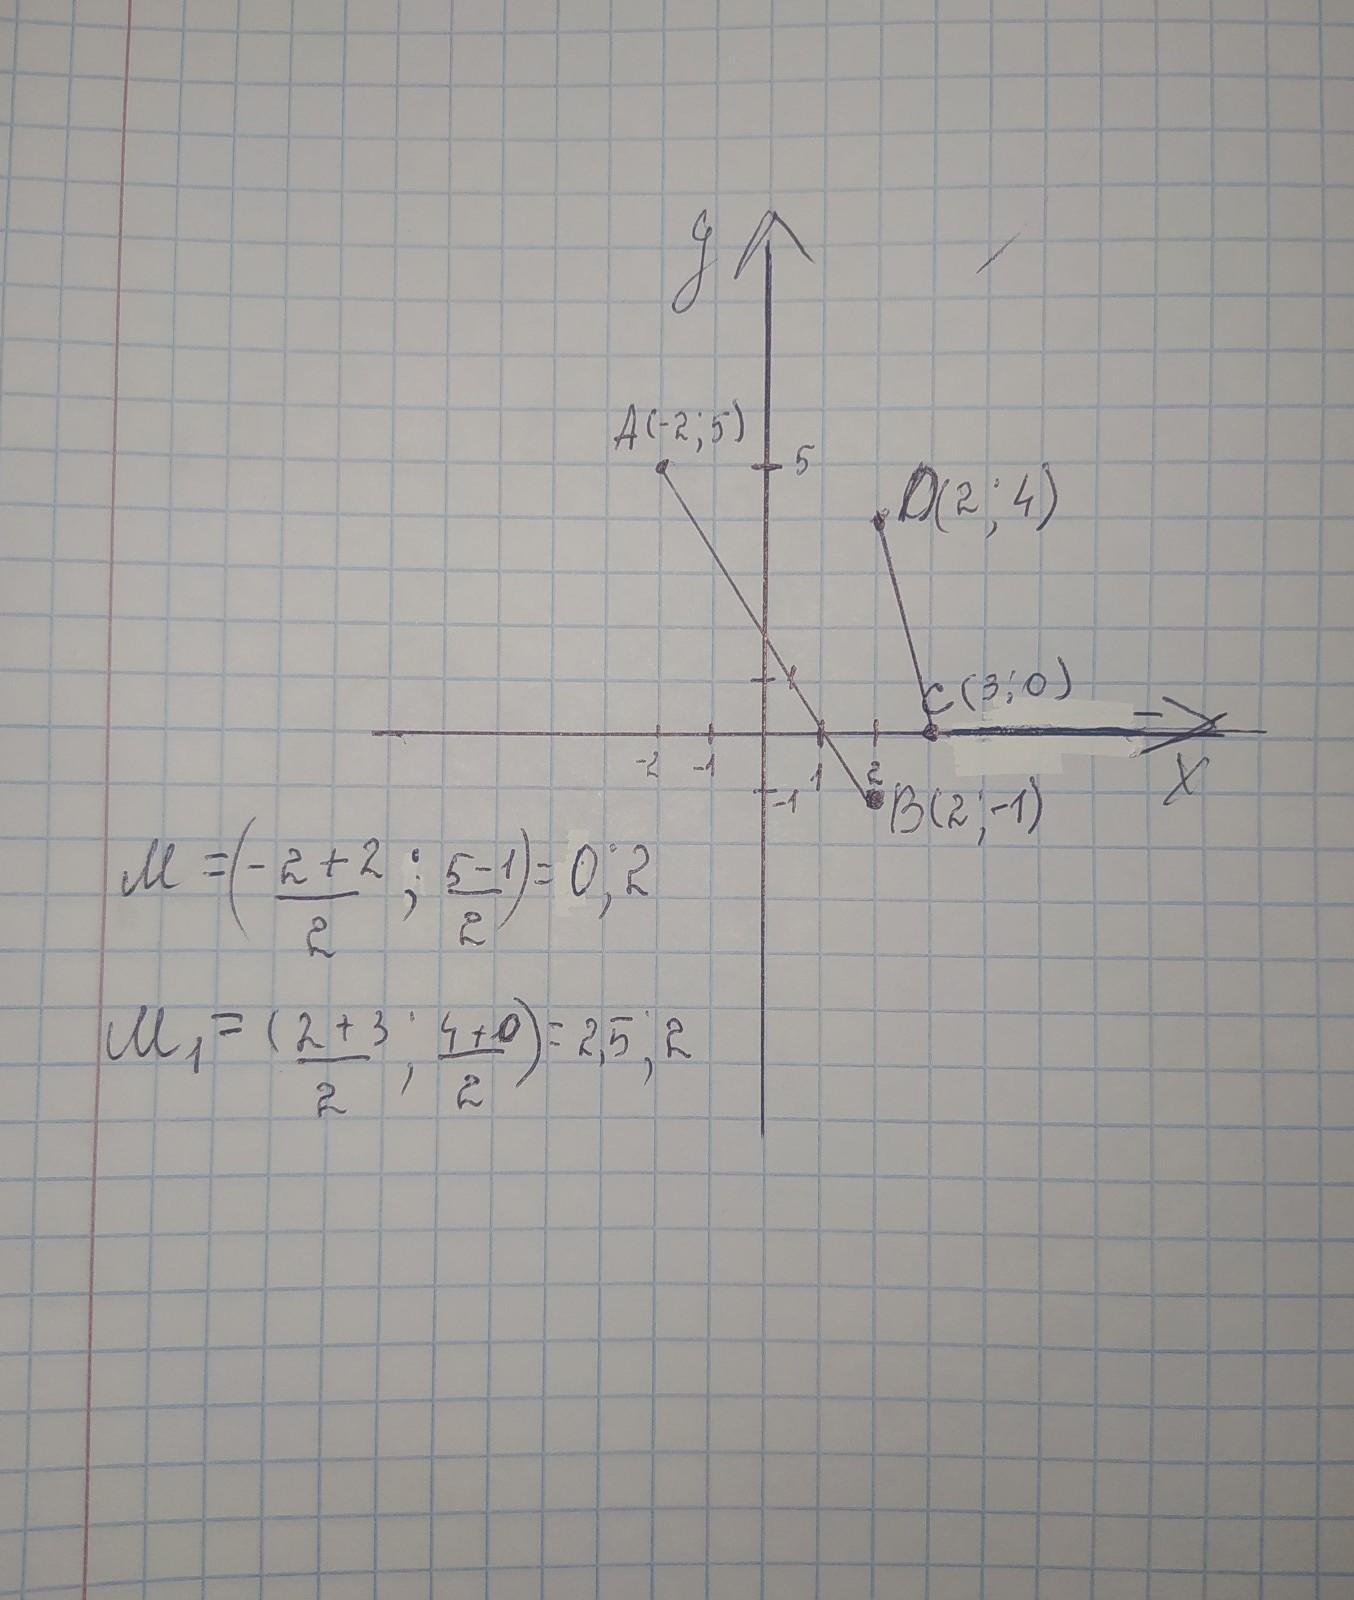 y
A(-2;5)
5
D(2;4)
C(3;0)
-2 -1 1 2
X
-1
B(2;-1)
M = (-2+2/2 ; 5-1/2) = 0;2
M₁ = (2+3/2 ; 4+0/2) = 2,5;2